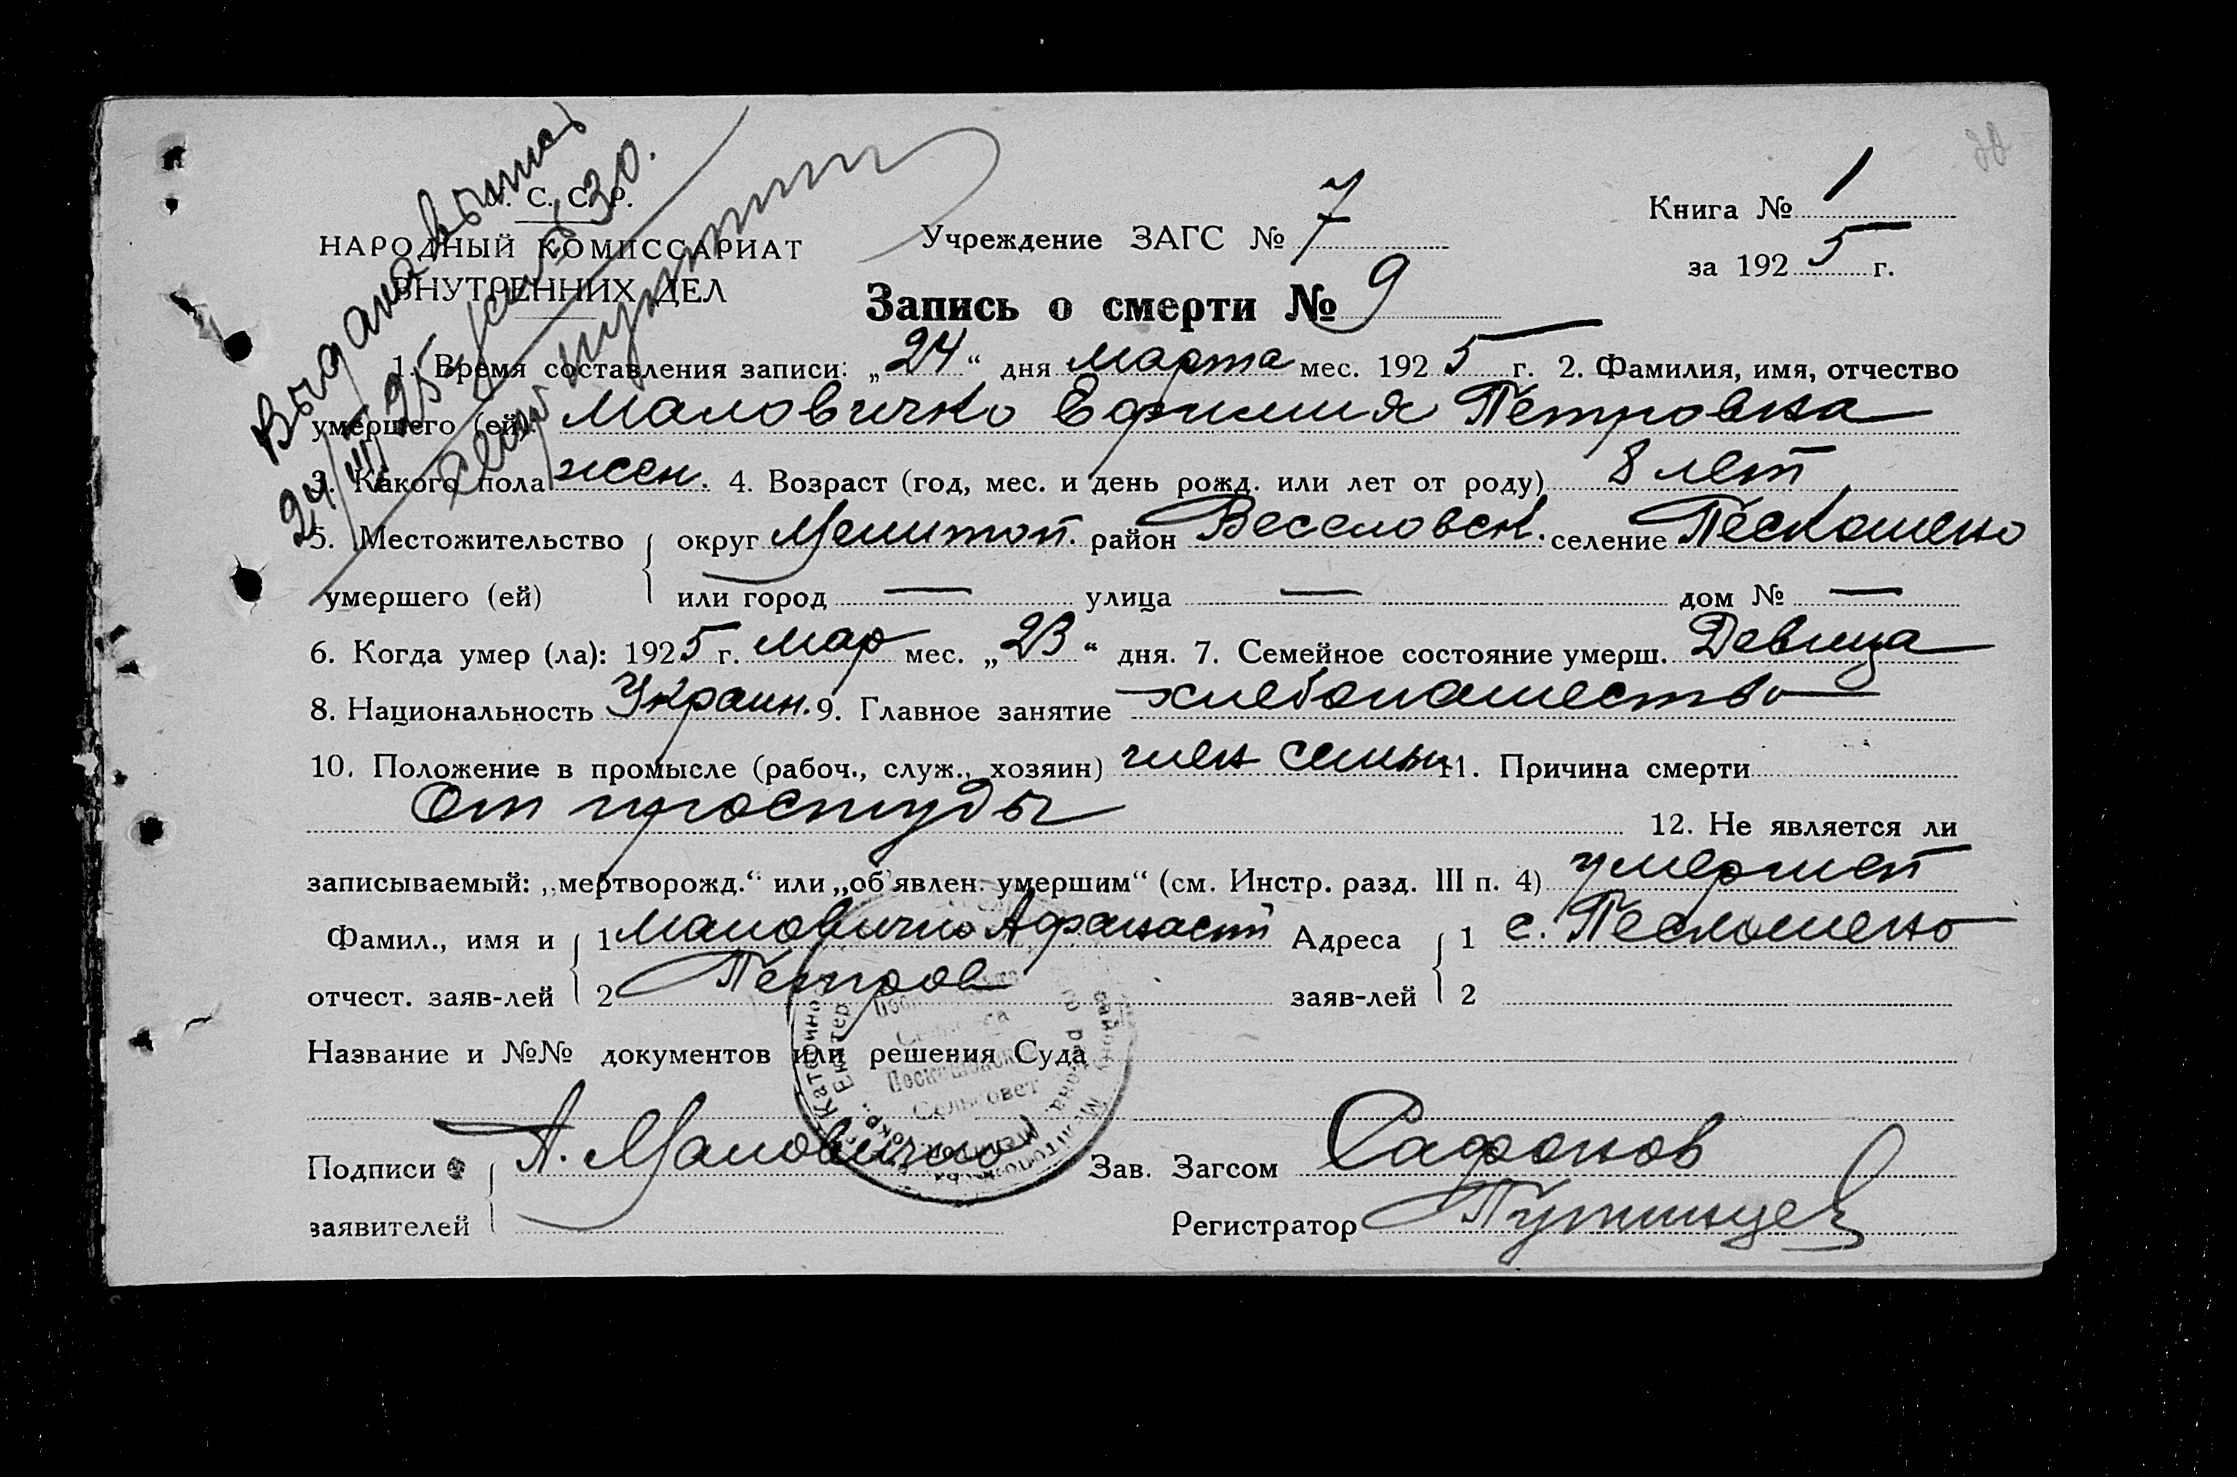 Выдана выпись
24/III 25
У. С. С. Р.
НАРОДНЫЙ КОМИССАРИАТ
ВНУТРЕННИХ ДЕЛ
Учреждение ЗАГС № 7
Книга № 1
за 1925 г.
Запись о смерти № 9
1. Время составления записи: „24“ дня марта мес. 1925 г. 2. Фамилия, имя, отчество
умершего (ей) Маловичко Ефимия Петровна
3. Какого пола жен. 4. Возраст (год, мес. и день рожд. или лет от роду) 8 лет
5. Местожительство округ Мелитоп. район Веселовск. селение Пескошено
умершего (ей) или город — улица — дом № —
6. Когда умер (ла): 1925 г. мар мес. „23“ дня. 7. Семейное состояние умерш. Девица
8. Национальность Украин. 9. Главное занятие хлебопашество
10. Положение в промысле (рабоч., служ., хозяин) член семьи 11. Причина смерти
От простуды 12. Не является ли
записываемый: „мертворожд.“ или „об'явлен. умершим“ (см. Инстр. разд. III п. 4) умершей
Фамил., имя и 1 Маловичко Афанасий Адреса 1 с. Пескошено
отчест. заяв-лей 2 Петров заяв-лей 2
Название и №№ документов или решения Суда
Сельсовет
Подписи А. Маловичко Зав. Загсом Сафонов
заявителей Регистратор Путинцев